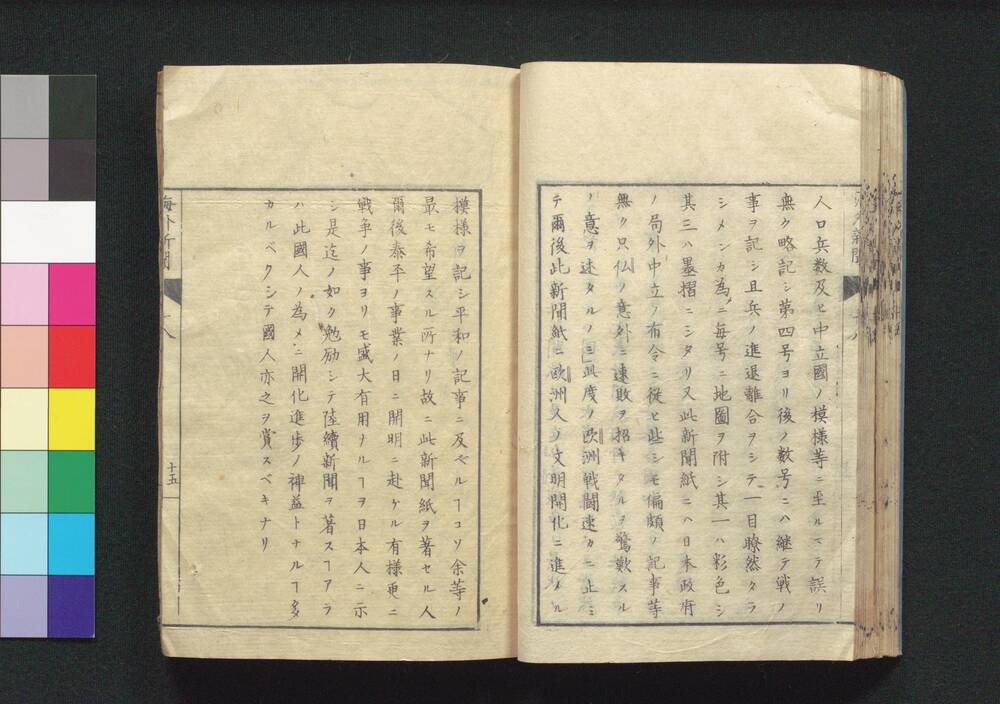 人口兵数及ヒ中立國ノ模様等ニ至ルマテ誤リ
無ク略記シ第四号ヨリ後ノ数号ニハ継テ戦ノ
事ヲ記シ且兵ノ進退離合ヲシテ一目瞭然タラ
シメンカ為メニ毎号ニ地圖ヲ附シ其一ハ彩色シ
其三ハ墨摺ニシタリ又此新聞紙ニハ日本政府
ノ局外中立ノ布令ニ従ヒ些シモ偏頗ノ記事等
無ク只仏ノ意外ニ速敗ヲ招キタルヲ驚歎スル
ノ意ヲ述タルノミ此度ノ欧洲戦闘速カニ止ミ
テ爾後此新聞紙ニ欧洲人ノ文明開化ニ進メル
模様ヲ記シ平和ノ記事ニ及ベルヿコソ余等ノ
最モ希望スル所ナリ故ニ此新聞紙ヲ著セル人
爾後泰平ノ事業ノ日ニ開明ニ赴ケル有様更ニ
戦争ノ事ヨリモ盛大有用ナルヿヲ日本人ニ示
シ是迄ノ如ク勉励シテ陸續新聞ヲ著スヿアラ
ハ此國人ノ為メニ開化進歩ノ裨益トナルヿ多
カルベクシテ國人亦之ヲ賞スベキナリ
海外新聞
十五